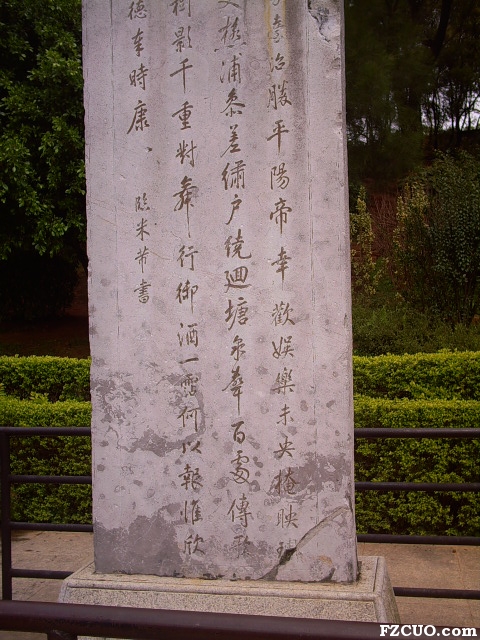 豪冶勝平陽帝幸歡娛樂未央掩映
浦參差繡戶繞迴塘泉聲百處傳歌
樹影千重對舞行御酒一霑何以報惟欣
德奉時康
臨米芾書
FZCUO.com